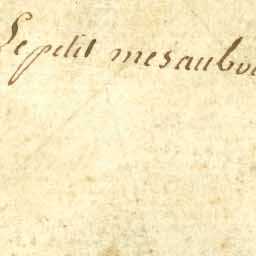 Le petit mesaubou